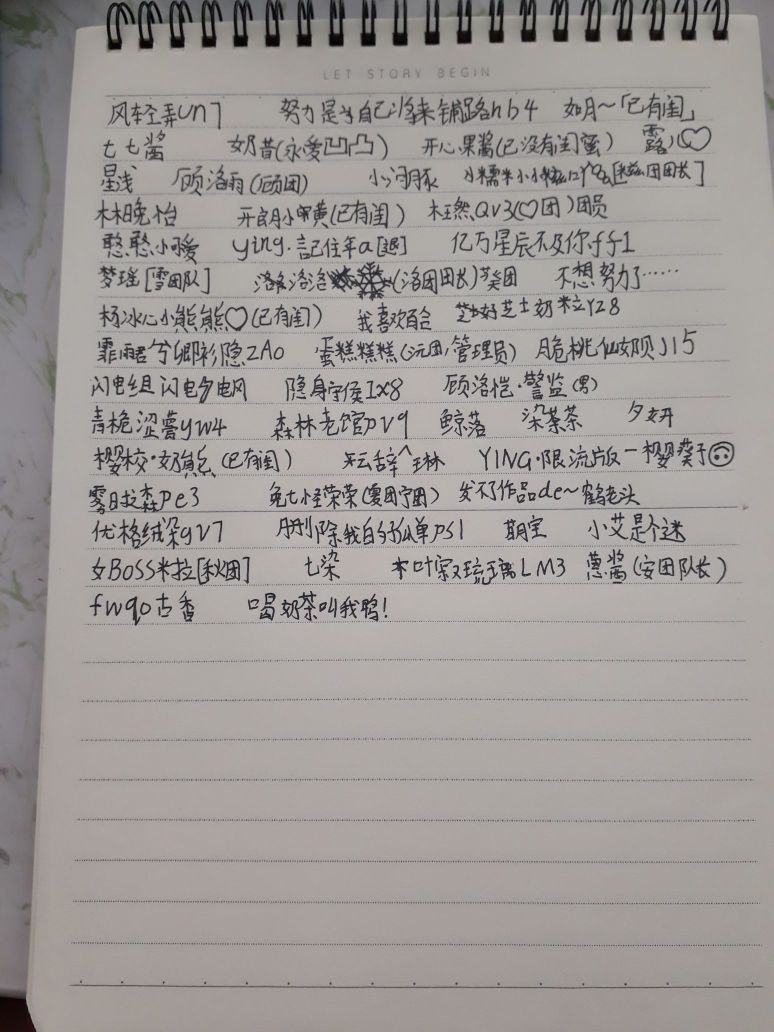 LET STORY BEGIN
风轻弄un7 努力是为自己将来铺路hb4 如月~「已有闺」
七七酱 奶昔(永爱凹凸) 开心果酱(已没有闺蜜) 露ノ♡
星浅 顾洛雨(顾团) 小 小糯米小小
林晚怡 开朗小 黄(已有闺) 林玉然QV3(♡团)团员
憨憨小可爱 ying·記住年a[退] 亿万星辰不及你ff1
梦瑶[雪团队] 洛洛洛 (洛团团长)葵团 不想努力了……
杨冰心小熊熊♡(已有闺) 我喜欢百合 芝士奶 粒y28
霏雨君兮卿衫隐ZA0 蛋糕糕糕(沅团,管理员) 脆桃仙女呗JJ5
闪电组闪电夕电网 隐身守侯Ix8 顾洛恺·警监(男)
青桅涩薯yw4 森林老馆pv9 鲸落 染茶茶 夕妍
樱校·奶熊(已有闺) 坛辞^琳 YING·限流版一樱葵子🙃
雾日拉森pe3 兔七怪荣荣(夏团守团) 发不了作品de~鹤老头
优格绒朵gV7 删除我的孤单PS1 期宝 小艾是个迷
女BOSS米拉[秋团] 七染 木叶寂琉璃LM3 葱酱(安团队长)
fwq0古香 喝奶茶叫我鸭!